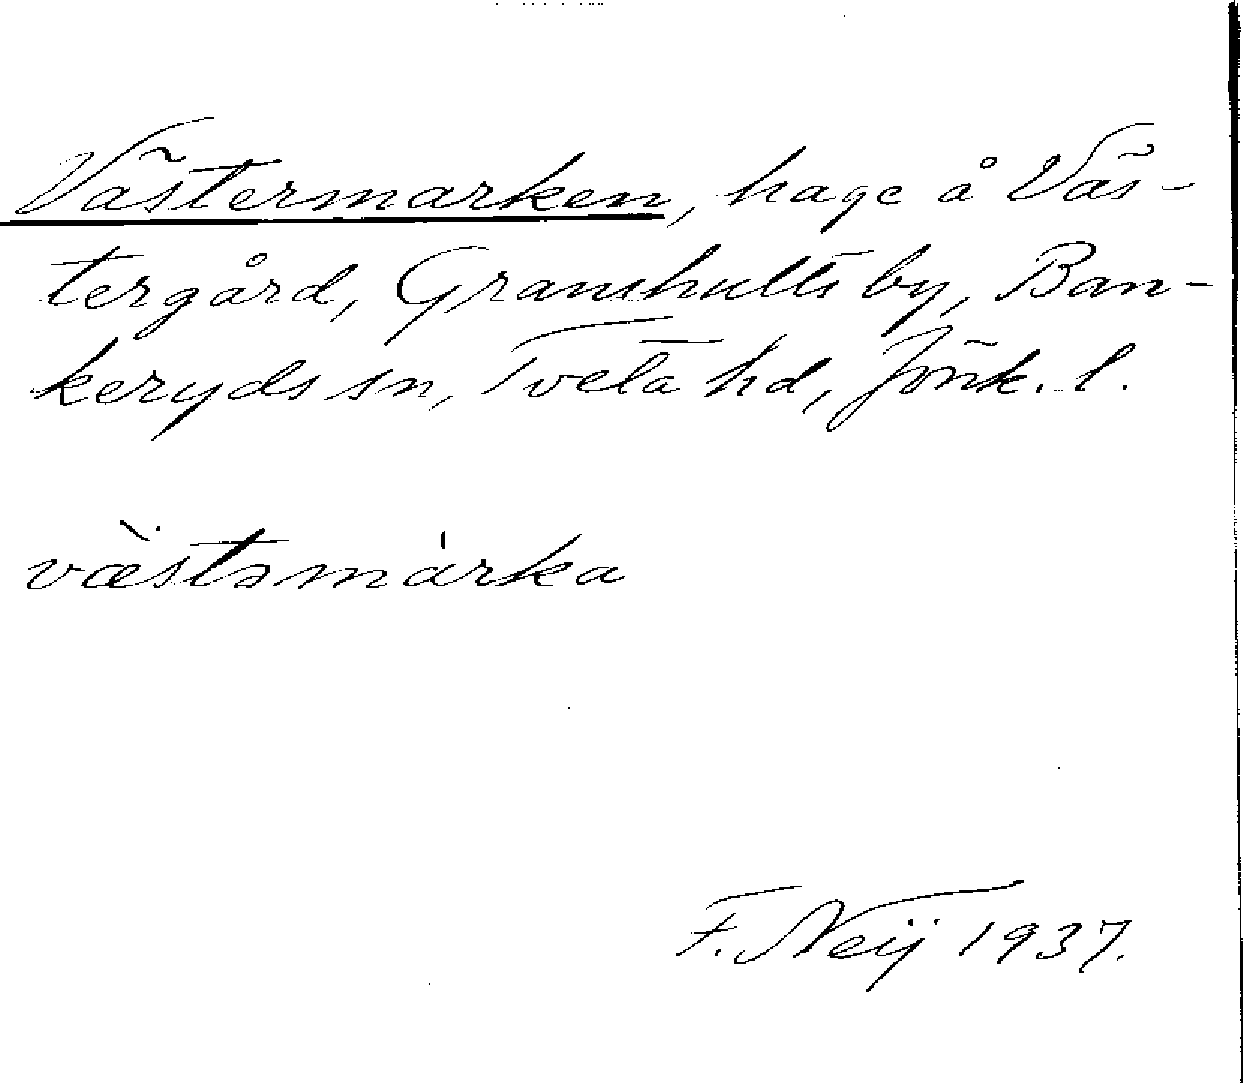 Västermarken, hage å Väs-
tergård, Granshults by, Ban-
keryds sn, Tveta hd, Jönk. l.
væ̀stəmàrka
F. Neij 1937.